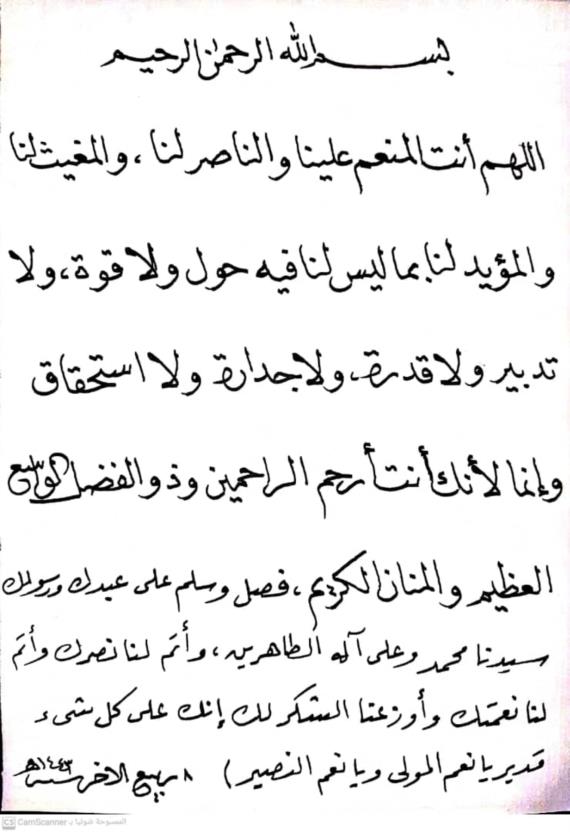 بسم الله الرحمن الرحيم
اللهم أنت المنعم علينا والناصر لنا ، والمغيث لنا
والمؤيد لنا بما ليس لنا فيه حول ولا قوة ، ولا
تدبير ولا قدرة ، ولا جدارة ولا استحقاق
وإنما لأنك أنت أرحم الراحمين وذو الفضل الواسع
العظيم والمنان الكريم ، فصل وسلم على عبدك ورسولك
سيدنا محمد وعلى آله الطاهرين ، وأتم لنا نصرك وأتم
لنا نعمتك وأوزعنا الشكر لك إنك على كل شيء
قدير يا نعم المولى ويا نعم النصير ) ٨ ربيع الآخر سنة ١٤٤٣هـ
CS CamScanner الممسوحة ضوئيا بـ